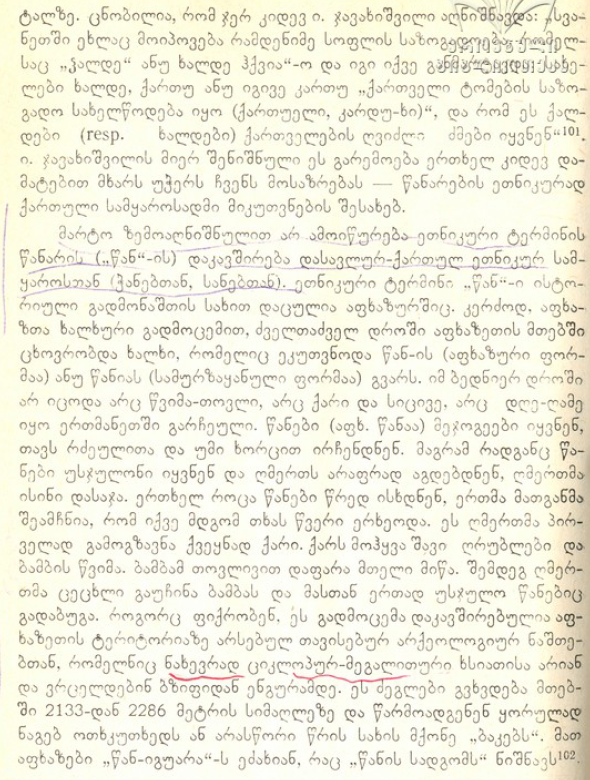 ტალზე. ცნობილია, რომ ჯერ კიდევ ი. ჯავახიშვილი აღნიშნავდა: „სვა-
ნეთში ეხლაც მოიპოვება რამდენიმე სოფლის საზოგადოება, რომელ-
საც „ჴალდე“ ანუ ხალდე ჰქვია“-ო და იგი იქვე განმარტავდა: სახე-
ლები ხალდე, ქართუ ანუ იგივე კართუ „ქართველი ტომების საზო-
გადო სახელწოდება იყო (ქართუელი, კარდუ-ხი)“, და რომ ეს ქალ-
დები (resp. ხალდები) ქართველების ღვიძლი ძმები იყვნენ“101.
ი. ჯავახიშვილის მიერ შენიშნული ეს გარემოება ერთხელ კიდევ და-
მატებით მხარს უჭერს ჩვენს მოსაზრებას — წანარების ეთნიკურად
ქართული სამყაროსადმი მიკუთვნების შესახებ.
მარტო ზემოაღნიშნულით არ ამოიწურება ეთნიკური ტერმინის
წანარის („წან“-ის) დაკავშირება დასავლურ-ქართულ ეთნიკურ სამ-
ყაროსთან (ჭანებთან, სანებთან). ეთნიკური ტერმინი „წან“-ი ისტო-
რიული გადმონაშთის სახით დაცულია აფხაზურშიც. კერძოდ, აფხა-
ზთა ხალხური გადმოცემით, ძველთაძველ დროში აფხაზეთის მთებში
ცხოვრობდა ხალხი, რომელიც ეკუთვნოდა წან-ის (აფხაზური ფორ-
მაა) ანუ წანიას (სამურზაყანული ფორმაა) გვარს. იმ ბედნიერ დროში
არ იცოდა არც წვიმა-თოვლი, არც ქარი და სიცივე, არც დღე-ღამე
იყო ერთმანეთში გარჩეული. წანები (აფხ. წანაა) მეჯოგეები იყვნენ,
თავს რძეულითა და უმი ხორცით ირჩენდნენ. მაგრამ რადგანც წა-
ნები უსჯულონი იყვნენ და ღმერთს არაფრად აგდებდნენ, ღმერთმა
ისინი დასაჯა. ერთხელ როცა წანები წრედ ისხდნენ, ერთმა მათგანმა
შეამჩნია, რომ იქვე მდგომ თხას წვერი ერხეოდა. ეს ღმერთმა პირ-
ველად გამოგზავნა ქვეყნად ქარი. ქარს მოჰყვა შავი ღრუბლები და
ბამბის წვიმა. ბამბამ თოვლივით დაფარა მთელი მიწა. შემდეგ ღმერ-
თმა ცეცხლი გაუჩინა ბამბას და მასთან ერთად უსჯულო წანებიც
გადაბუგა. როგორც ფიქრობენ, ეს გადმოცემა დაკავშირებულია აფ-
ხაზეთის ტერიტორიაზე არსებულ თავისებურ არქეოლოგიურ ნაშთე-
ბთან, რომელნიც ნახევრად ციკლოპურ-მეგალითური ხსიათისა არიან
და ვრცელდებინ ბზიფიდან ენგურამდე. ეს ძეგლები გვხვდება მთებ-
ში 2133-დან 2286 მეტრის სიმაღლეზე და წარმოადგენენ ყორულად
ნაგებ ოთხკუთხედს ან არასწორი წრის სახის მქონე „ბაკებს“. მათ
აფხაზები „წან-იგუარა“-ს ეძახიან, რაც „წანის სადგომს“ ნიშნავს102.